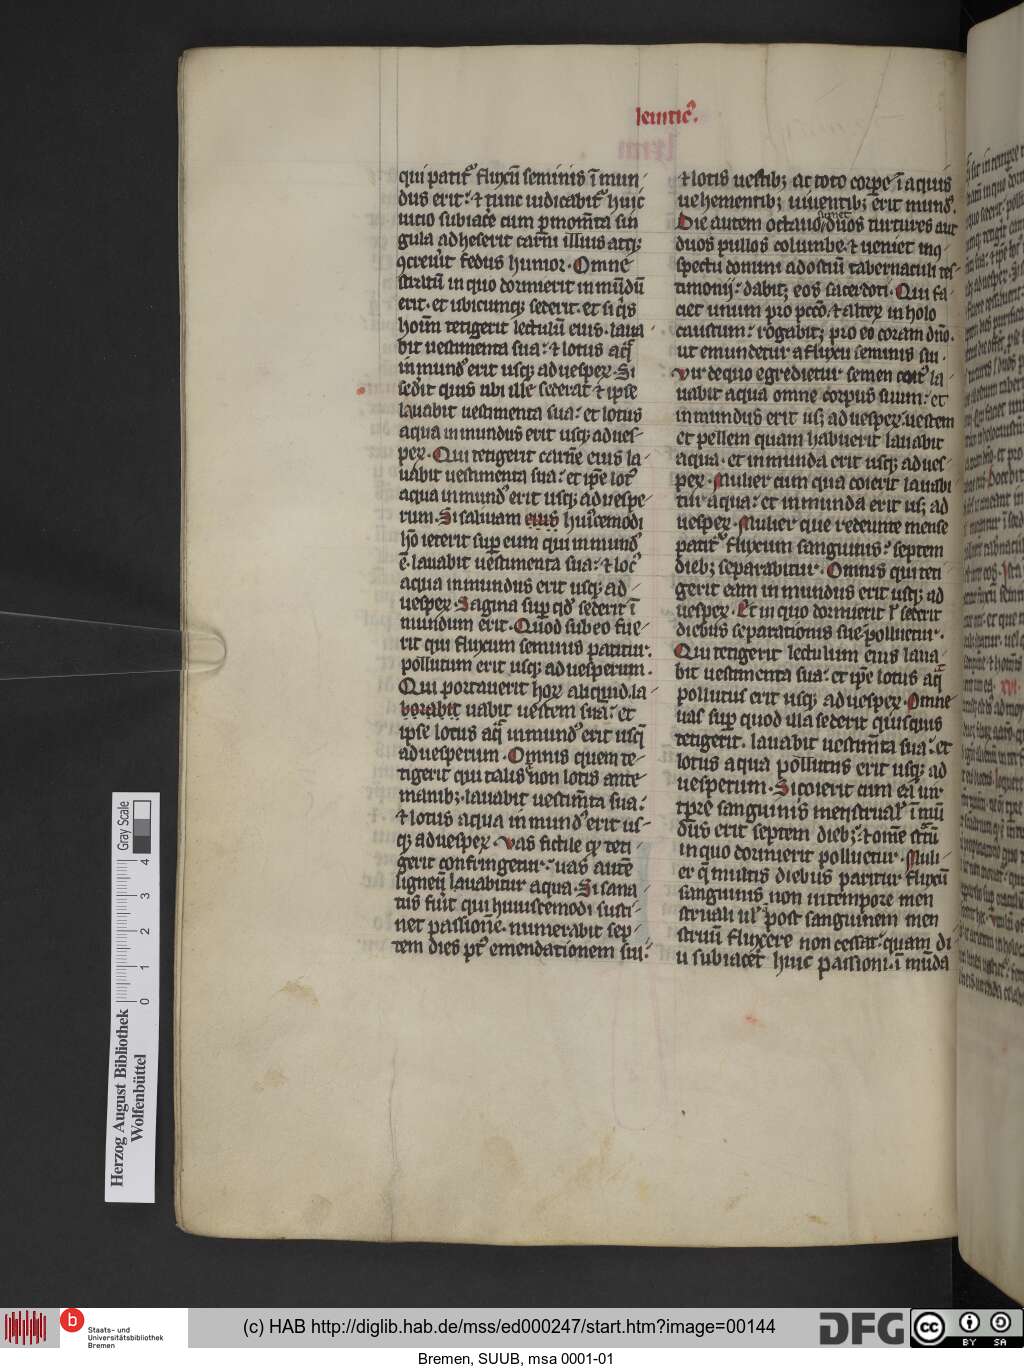 leuitic̉.
qui patit᷑ fluxū seminis ī mun/
dus erit: ⁊ tunc iudicabit᷑ huic
uicio subiace cum ꝑ mom̄ta sin
gula adheserit carni illius atq;
ꝯcreuit fedus humor. Omne
stratū in quo dormierit inmūdū
erit. et ubicumq; sederit. et si q̇s
hoīm tetigerit lectulū eius. laua/
bit uestimenta sua: ⁊ lotus aq̄
inmund᷒ erit usq; ad uesperꝫ. Si
sedit quis ubi ille sederat ⁊ ipse
lauabit uestimenta sua: et lotus
aqua inmundus erit usq; ad ues/
perꝫ. Qui tetigerit carnē eius la/
uabit uestimenta sua: et ip̄e lot᷒
aqua inmund᷒ erit usq; ad uespe/
rum. Si saliuam eius hui᷒cemodi
hō iecerit sup̄ eum qui inmund᷒
ē. lauabit uestimenta sua: ⁊ lot᷒
aqua inmundus erit usq; ad/
uesperꝫ. Sagina sup̄ qd᷒ sederit ī
mundum erit. Quod sub eo fue/
rit qui fluxum seminis patitur.
pollutum erit usq; ad uesperum.
Qui portauerit horꝫ aliquid. la/
borabit uabit uestem suā: et
ipse lotus aq̄ inmund᷒ erit usq̄
ad uesperum. Omnis quem te/
tigerit qui talis ē non lotis ante/
manib; lauabit uestim̄ta sua:
⁊ lotus aqua inmund᷒ erit us/
q; ad uesperꝫ. Vas fictile qd᷒ teti/
gerit confringetur: uas autē
ligneū lauabitur aqua. Si sana/
tus fuīt qui huiuscemodi susti/
net passionē. numerabit sep/
tem dies pt᷒ emendationem sui:
⁊ lotis uestib; ac toto corpe ī aquis
uehementib; uiuentib; erit mund᷒.
Die autem octauo sumet duos turtures aut
duos pullos columbe. ⁊ ueniet inꝯ/
spectu domini ad ostiū tabernaculi tes/
timonij: dabit; eos sacerdoti. Qui fa/
ciet unum pro pccō. ⁊ alterꝫ in holo
caustum: rogabit; pro eo coram dn̄o.
ut emundetur a fluxu seminis sui.
Vir de quo egredietur semen coit᷒ la/
uabit aqua omne corpus suum: et
inmundus erit us; ad uesperꝫ. uestem
et pellem quam habuerit lauabit
aqua. et inmunda erit usq; ad ues/
perꝫ. Mulier cum qua coierit lauabi
tur aqua: et inmunda erit us; ad
uesperꝫ. Mulier que redeunte mense
patit᷑ fluxum sanguinis: septem
dieb; separabitur. Omnis qui teti
gerit eam inmundus erit usq; ad
uesperꝫ. Et in quo dormierit ł sederit
diebus separationis sue polluetur.
Qui tetigerit lectulum eius laua/
bit uestimenta sua: et ip̄e lotus aq̄
pollutus erit usq; ad uesperꝫ. Omne
uas sup̄ quod illa sederit quisquis
tetigerit. lauabit uestim̄ta sua: et
lotus aqua pollutus erit usq; ad
uesperum. Si coierit cum eā uir
tpre sanguinis menstrual᷒ ī mū
dus erit septem dieb;: ⁊ om̄e strātū
in quo dormierit polluetur. Muli/
er q̄ multis diebus patitur fluxū
sanguinis non in tempore men
struali uł post sanguinem men
struū fluxere non cessat: quam di
u subiacet huic passioni. ī mūda
Herzog August Bibliothek
Wolfenbüttel
0 1 2 3 4
Gray Scale
b Staats- und
Universitätsbibliothek
Bremen
(c) HAB http://diglib.hab.de/mss/ed000247/start.htm?image=00144
DFG
cc BY SA
Bremen, SUUB, msa 0001-01